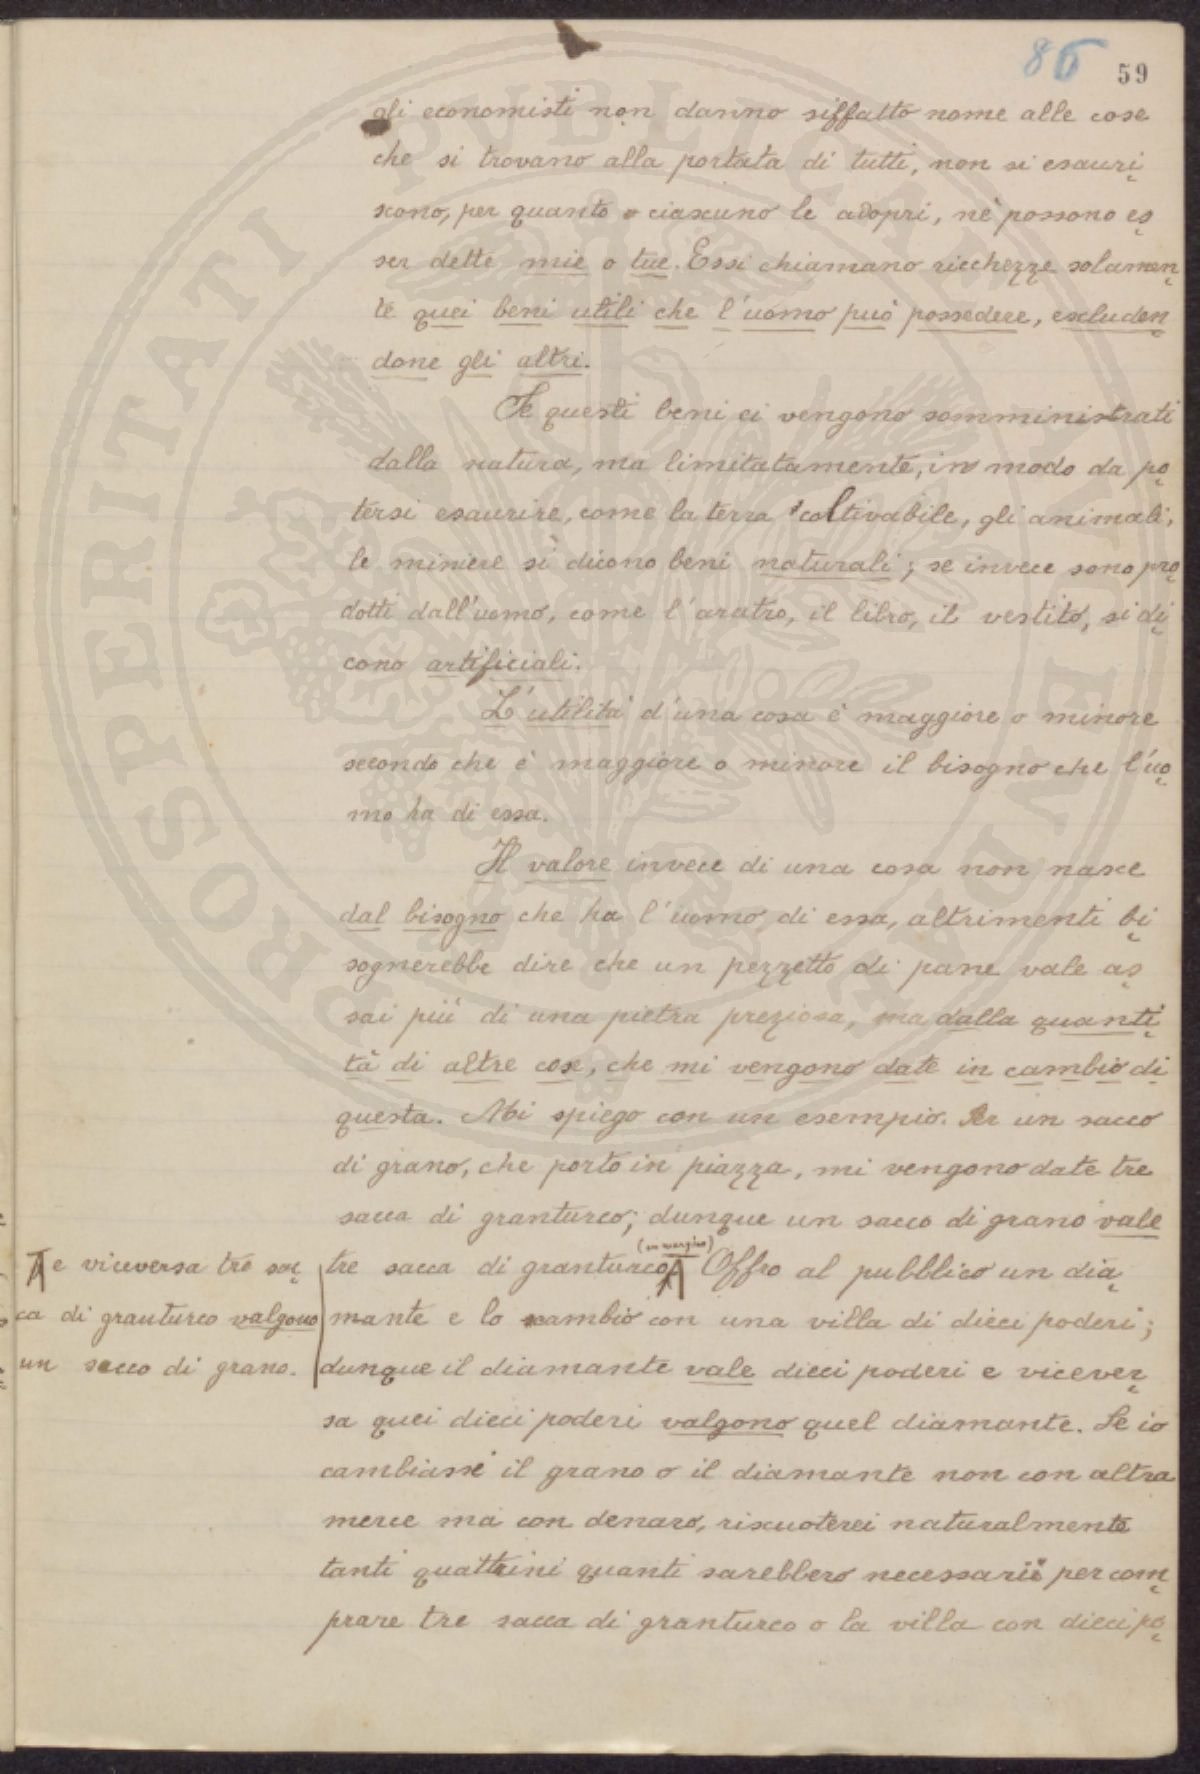 86 59
gli economisti non danno siffatto nome alle cose
che si trovano alla portata di tutti, non si esauri
scono, per quanto ciascuno le adopri, nè possono es
ser dette mie o tue. Essi chiamano ricchezze solamen
te quei beni utili che l'uomo può possedere, escluden
done gli altri.
Se questi beni ci vengono somministrati
dalla natura, ma limitatamente, in modo da po
tersi esaurire, come la terra coltivabile, gli animali,
le miniere si dicono beni naturali; se invece sono pro
dotti dall'uomo, come l'aratro, il libro, il vestito, si di
cono artificiali.
L'utilità d'una cosa è maggiore o minore
secondo che è maggiore o minore il bisogno che l'uo
mo ha di essa.
Il valore invece di una cosa non nasce
dal bisogno che ha l'uomo di essa, altrimenti bi
sognerebbe dire che un pezzetto di pane vale as
sai più di una pietra preziosa, ma dalla quanti
tà di altre cose, che mi vengono date in cambio di
questa. Mi spiego con un esempio. Per un sacco
di grano, che porto in piazza, mi vengono date tre
sacca di granturco; dunque un sacco di grano vale
tre sacca di granturco (in margine) Offro al pubblico un dia
mante e lo scambio con una villa di dieci poderi;
dunque il diamante vale dieci poderi e vicever
sa quei dieci poderi valgono quel diamante. Se io
cambiassi il grano o il diamante non con altra
merce ma con denaro, riscuoterei naturalmente
tanti quattrini quanti sarebbero necessarii per com
prare tre sacca di granturco o la villa con dieci po
e viceversa tre sac
ca di granturco valgono
un sacco di grano.
PROSPERITATI PVBLICAE AVGENDAE